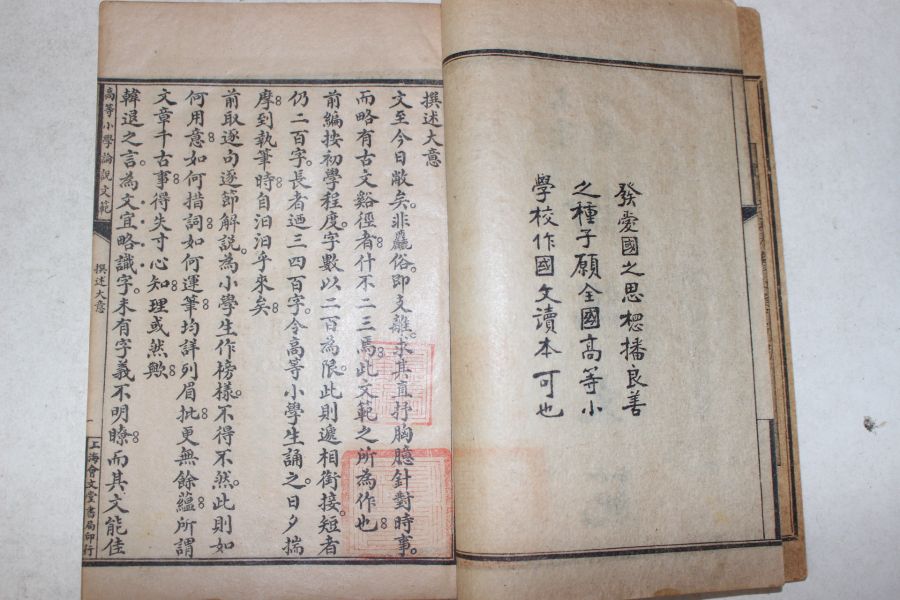 發愛國之思想播良善
之種子願全國高等小
學校作國文讀本可也
撰述大意
文至今日敝矣。非麤俗。即支離。求其直抒胸臆針對時事。
而略有古文谿徑者什不二三焉此文範之所為作也
前編按初學程度。字數以二百為限。此則遞相銜接。短者
仍二百字。長者迺三四百字。令高等小學生誦之。日夕揣
摩到執筆時自汨汨乎來矣
前取逐句逐節解說。為小學生作榜樣。不得不然。此則如
何用意如何措詞如何運筆均詳列眉批更無餘蘊所謂
文章千古事得失寸心知理或然歟
韓退之言。為文宜略識字。未有字義不明瞭。而其文能佳
高等小學論說文範
撰述大意
一
上海會文堂書局印行